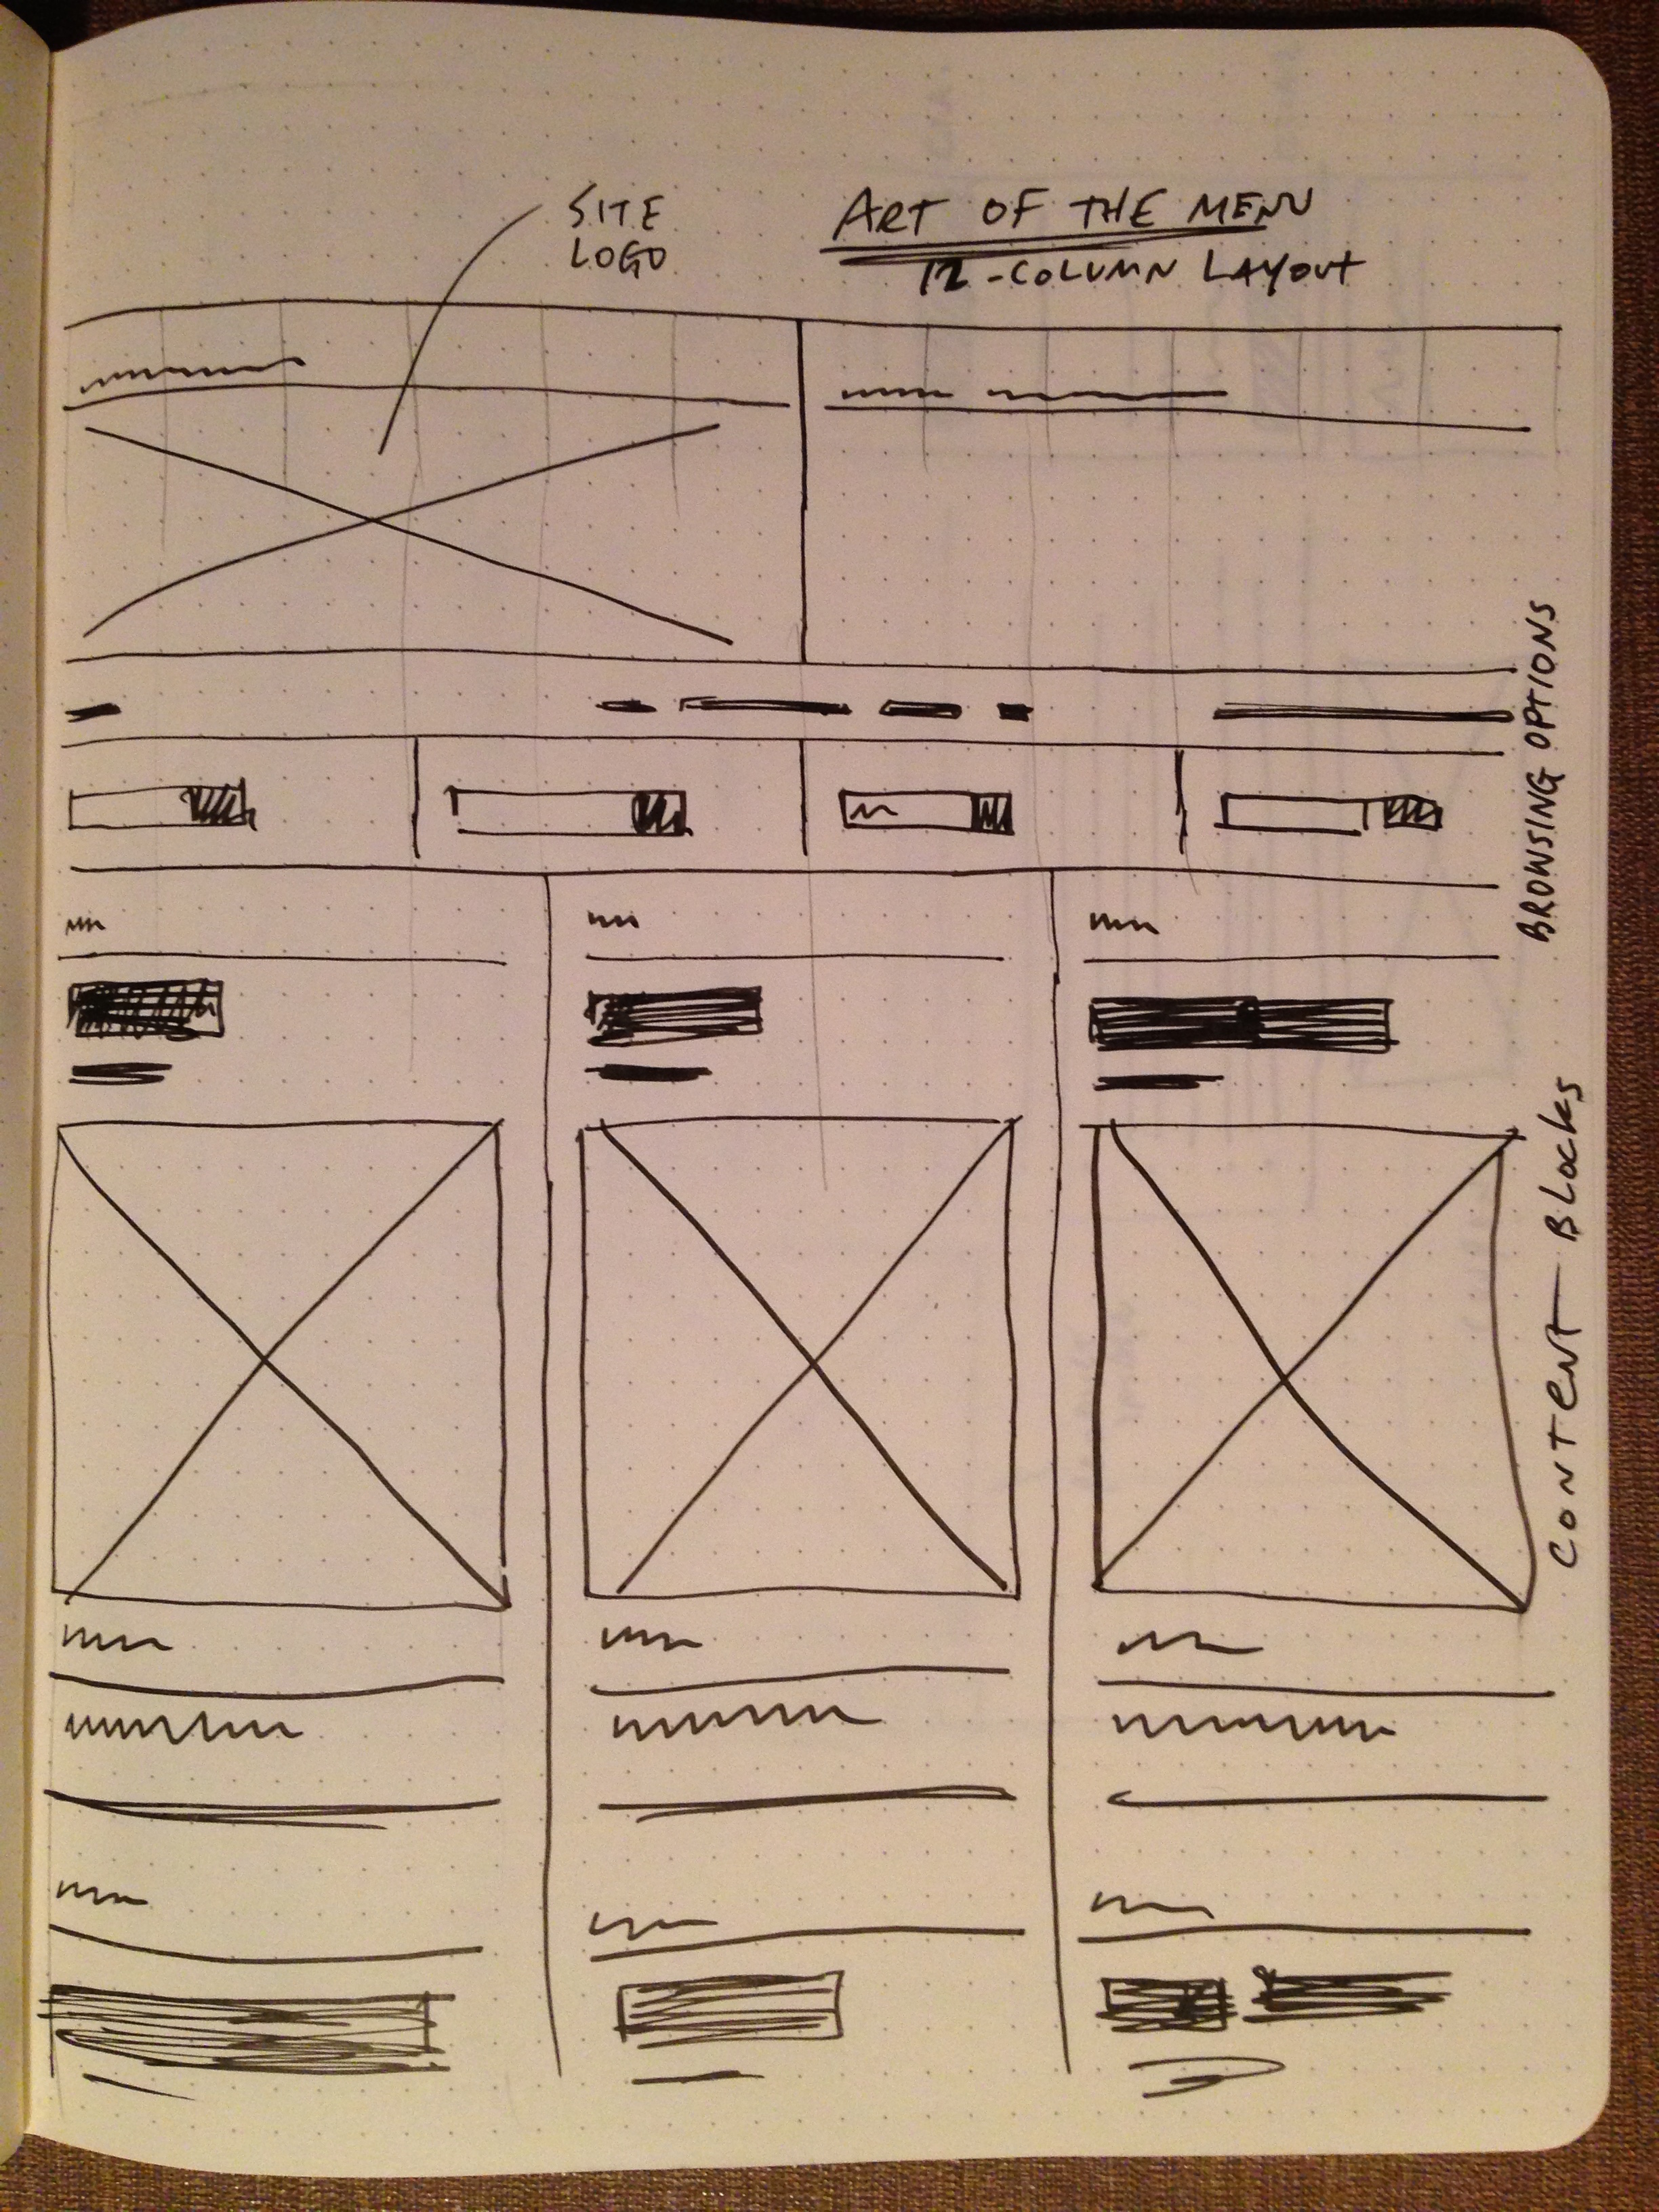 SITE
LOGO
ART OF THE MENU
12-COLUMN LAYOUT
BROWSING OPTIONS
CONTENT BLOCKS